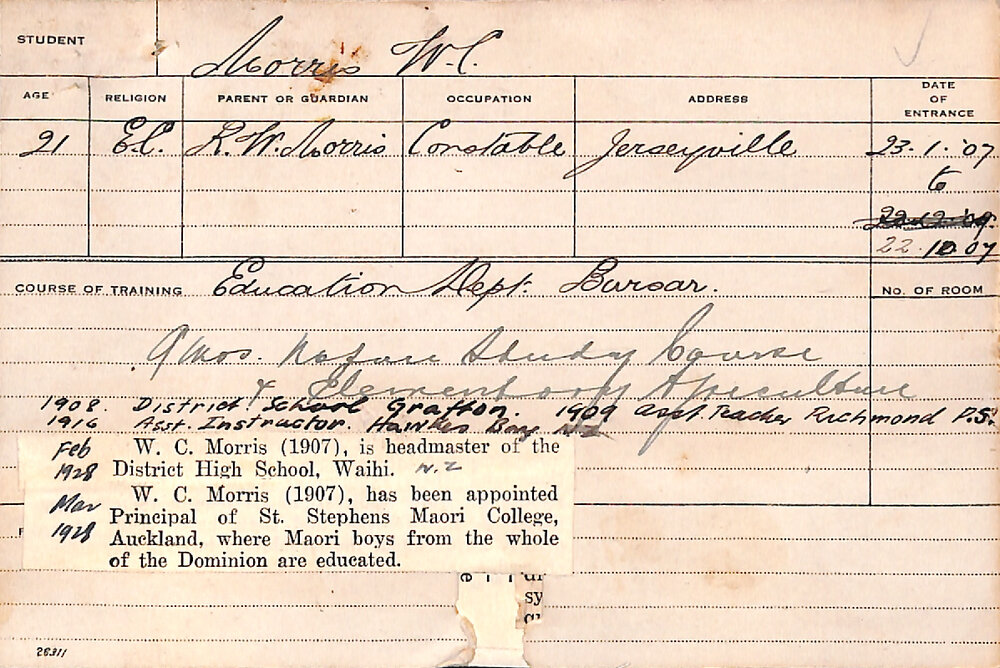 STUDENT Morris W.C.
AGE RELIGION PARENT OR GUARDIAN OCCUPATION ADDRESS DATE OF ENTRANCE
21 E.C. R.W. Morris Constable Jerseyville 23.1.'07
to
22.12.'09.
22.10.07
COURSE OF TRAINING Education Dept. Bursar. No. OF ROOM
9 mos. Nature Study Course
& Elementary Apiculture
1908. District School Grafton. 1909 Asst. Teacher Richmond P.S.
1916 Asst. Instructor. Hawkes Bay NZ
Feb W. C. Morris (1907), is headmaster of the
1928 District High School, Waihi. N.Z
Mar W. C. Morris (1907), has been appointed
Principal of St. Stephens Maori College,
1928 Auckland, where Maori boys from the whole
of the Dominion are educated.
sy
26311